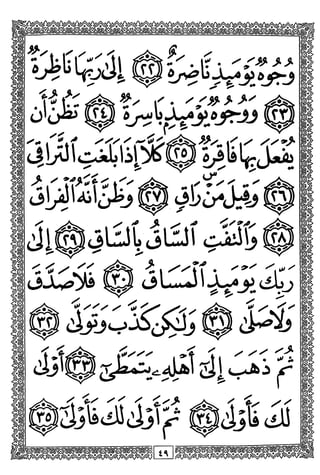 وُجُوهٌ يَوْمَئِذٍ نَّاضِرَةٌ ٢٢ إِلَىٰ رَبِّهَا نَاظِرَةٌ
٢٣ وَوُجُوهٌ يَوْمَئِذٍ بَاسِرَةٌ ٢٤ تَظُنُّ أَن
يُفْعَلَ بِهَا فَاقِرَةٌ ٢٥ كَلَّا إِذَا بَلَغَتِ التَّرَاقِيَ
٢٦ وَقِيلَ مَنْ رَاقٍ ٢٧ وَظَنَّ أَنَّهُ الْفِرَاقُ
٢٨ وَالْتَفَّتِ السَّاقُ بِالسَّاقِ ٢٩ إِلَىٰ
رَبِّكَ يَوْمَئِذٍ الْمَسَاقُ ٣٠ فَلَا صَدَّقَ
وَلَا صَلَّىٰ ٣١ وَلَٰكِن كَذَّبَ وَتَوَلَّىٰ ٣٢
ثُمَّ ذَهَبَ إِلَىٰ أَهْلِهِ يَتَمَطَّىٰ ٣٣ أَوْلَىٰ
لَكَ فَأَوْلَىٰ ٣٤ ثُمَّ أَوْلَىٰ لَكَ فَأَوْلَىٰ ٣٥
٤٩